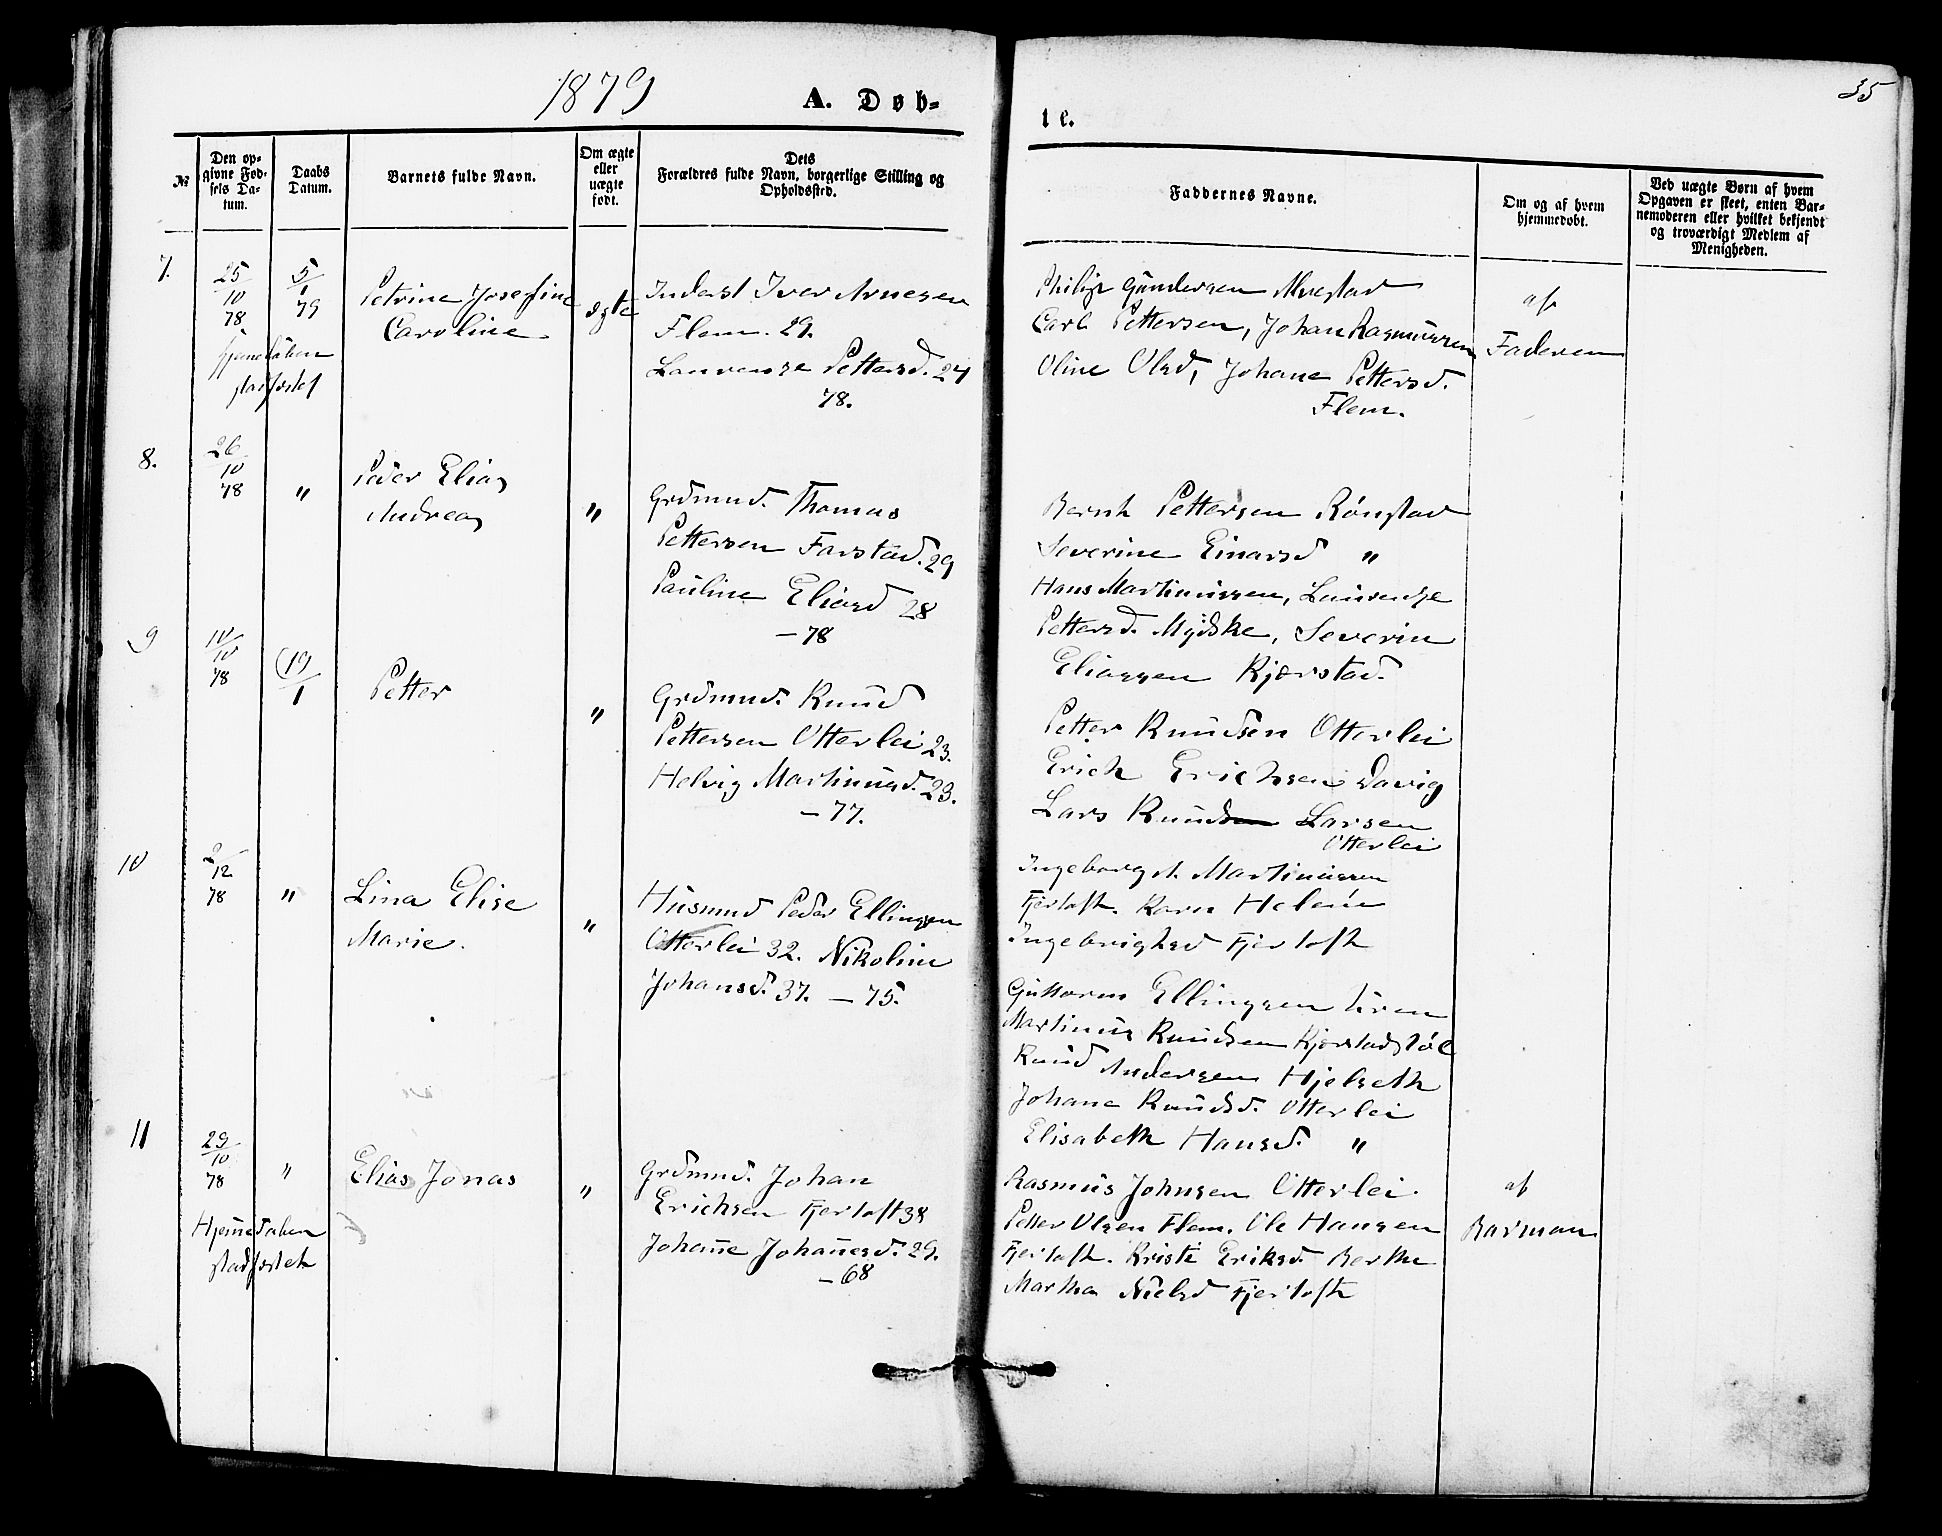 1879
A. Døb-
te.
35
№
Den op-
givne Fød-
sels Da-
tum.
Daabs
Datum.
Barnets fulde Navn.
Om ægte
eller
uægte
født.
Dets
Forældres fulde Navn, borgerlige Stilling og
Opholdssted.
Faddernes Navne.
Om og af hvem
hjemmedøbt.
Ved uægte Børn af hvem
Opgaven er skeet, enten Bar-
nemoderen eller hvilket bekjendt
og troværdigt Medlem af
Menigheden.
7.
25/10
78
5/1
79
Hjemedåben
stadfæstet
Petrine Josefine
Caroline
ægte
Inderst Iver Arnesen
Flem. 29.
Laurense Pettersd. 24
78.
Philip Gundersen
Carl Pettersen, Johan Rasmussen
Oline Olsd, Johane Pettersd.
Flem.
af
Faderen
8.
26/10
78
"
Peder Elias
Andreas
"
Grdmnd. Thomas
Pettersen Farstad. 29
Pauline Eliasd 28
- 78
Bernt Pettersen Rønstad
Severine Einarsd "
Hans Martinussen, Laurense
Pettersd. Myðske, Severin
Eliassen Kjærstad.
9
10/10
78
19/1
Petter
"
Grdmnd. Knud
Pettersen Otterlei 23.
Helvig Martinusd. 23.
- 77.
Petter Knudsen Otterlei
Erich Erichsen Davig
Lars Knudsen Larsen
Otterlei
Ingeborg A. Martinussen
Fjørtoft. Karn Helene
Ingebrigtsd Fjørtoft
10
2/12
78
"
Lina Elise
Marie.
"
Husmnd Peder Ellingsen
Otterlei 32. Nikoline
Johansd. 37. - 75.
Guttorm Ellingsen Uren
Martinus Knudsen Kjærstadstøl
Knud Andersen Hjelseth
Johane Knudsd. Otterlei
Elisabeth Hansd. "
11
29/10
78
"
Hjemedaben
stadfæstet
Elias Jonas
"
Grdmnd. Johan
Erichsen Fjørtoft 38
Johanne Johannesd. 29.
- 68
Rasmus Johnsen Otterlei.
Petter Olsen Flem. Ole Hansen
Fjørtoft. Kristi Eriksd. Berthe
Martha Nielsd Fjørtoft
af
Barman